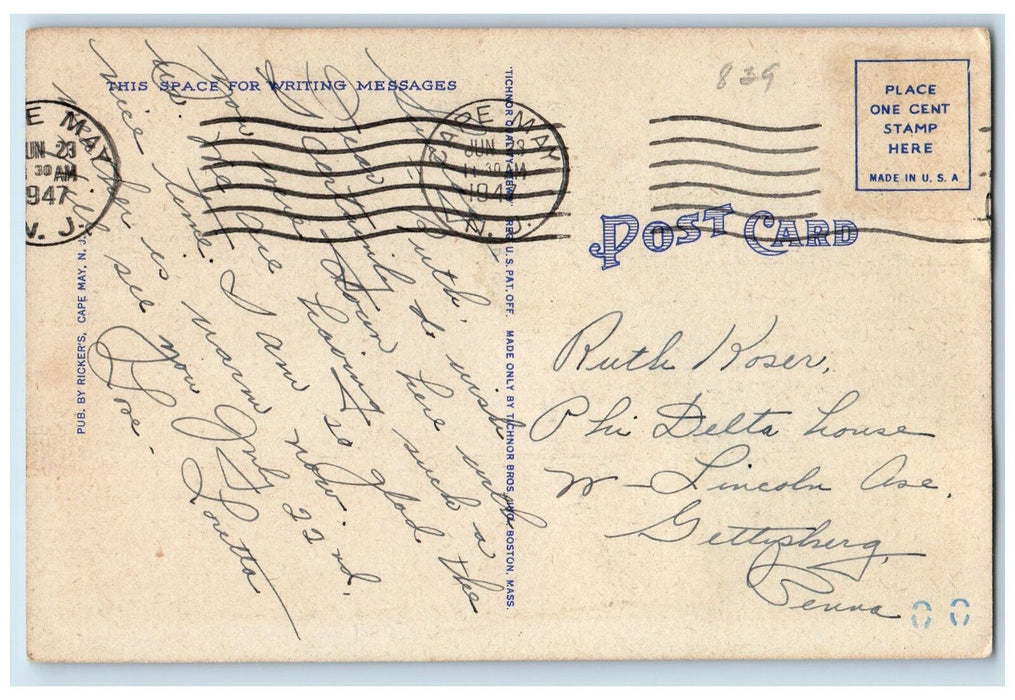 THIS SPACE FOR WRITING MESSAGES
Dear Ruth:
certainly do wish
you were down here with
us. They are having such a
nice time. I am so glad the
is warm now.
I'll see you July 22nd.
Love.
Loretta
CAPE MAY
JUN 23
11 30 AM
1947
N. J.
E MAY
JUN 23
30 AM
1947
N. J.
PUB. BY RICKER'S, CAPE MAY, N. J.
"TICHNOR QUALITY VIEWS" REG. U.S. PAT. OFF. MADE ONLY BY TICHNOR BROS., INC., BOSTON, MASS.
839
PLACE
ONE CENT
STAMP
HERE
MADE IN U.S.A
POST CARD
Ruth Koser,
Phi Delta house
W-Lincoln Ave.
Gettysburg,
Penna